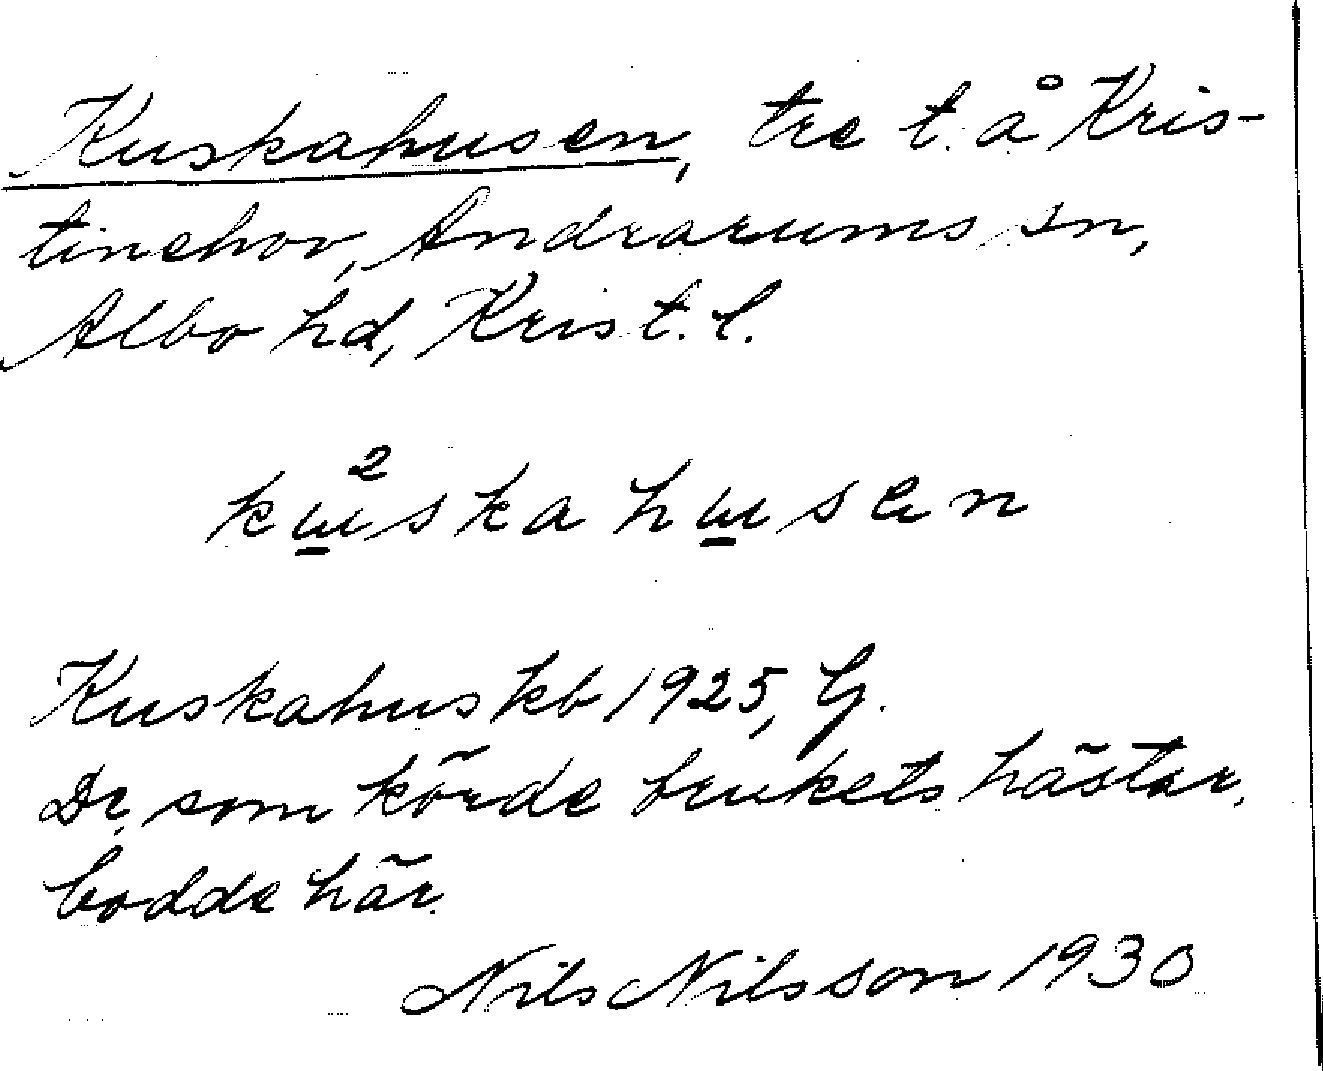 Kuskahusen, tre t. å Kris-
tinehov, Andrarums sn,
Albo hd, Krist. l.
kɯ²skahɯsen
Kuskahus kb 1925, G.
De som körde brukets hästar,
bodde här.
Nils Nilsson 1930